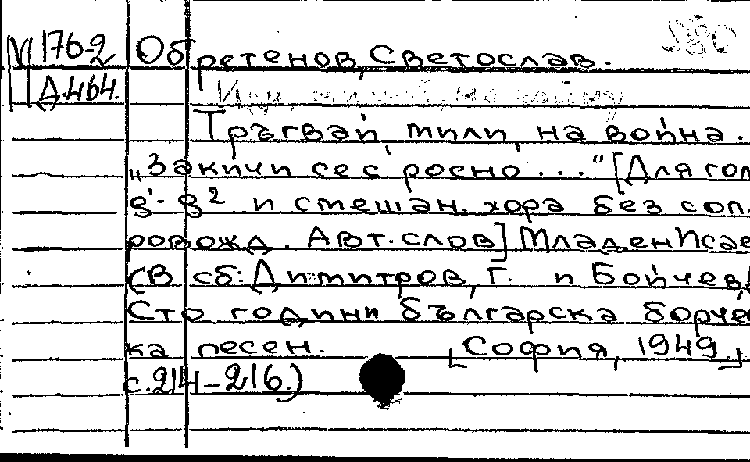 М 176-2 Обретенов, Светослав.
Д.464.
Иди, милый, на войну
Тръгвай, мили, на война.
„Закичи се с росно..." [Для гол
g'- g² и смешан. хора без соп
ровожд. Авт. слов] Младен Исае
(В сб: Димитров, Г. и Бойчев,
Сто години българска борче
ка песен. [София, 1949.]
с. 214-216.)